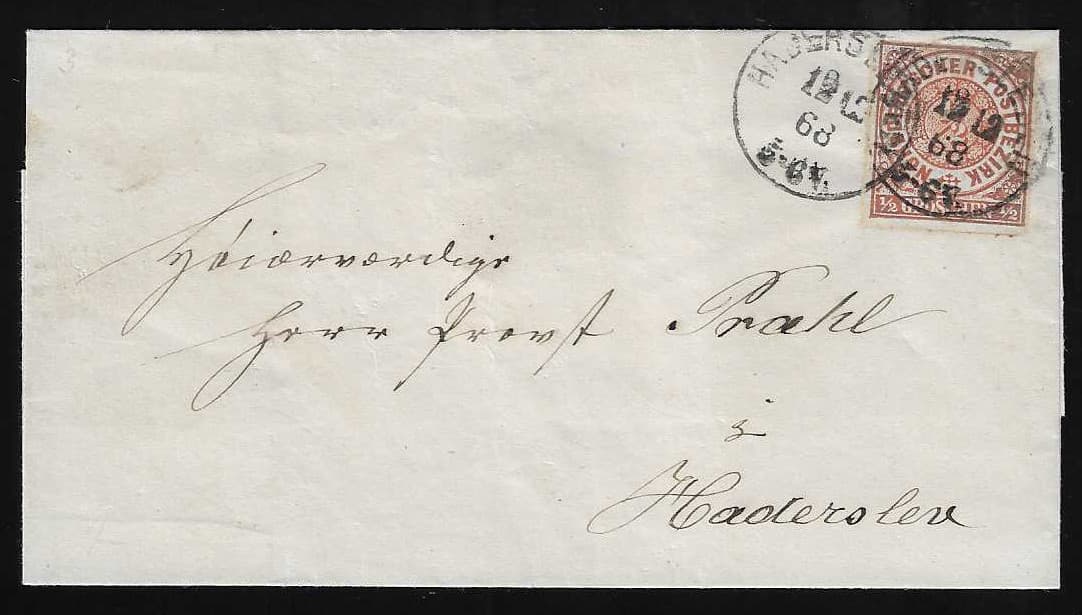 3
HADERSLEBEN
12 12
68
5-6V.
NORDDEUTSCHER POSTBEZIRK
½ GROSCHEN ½
12 12
68
5-6V.
Høiærværdige
Herr Provst Prahl
i
Haderslev